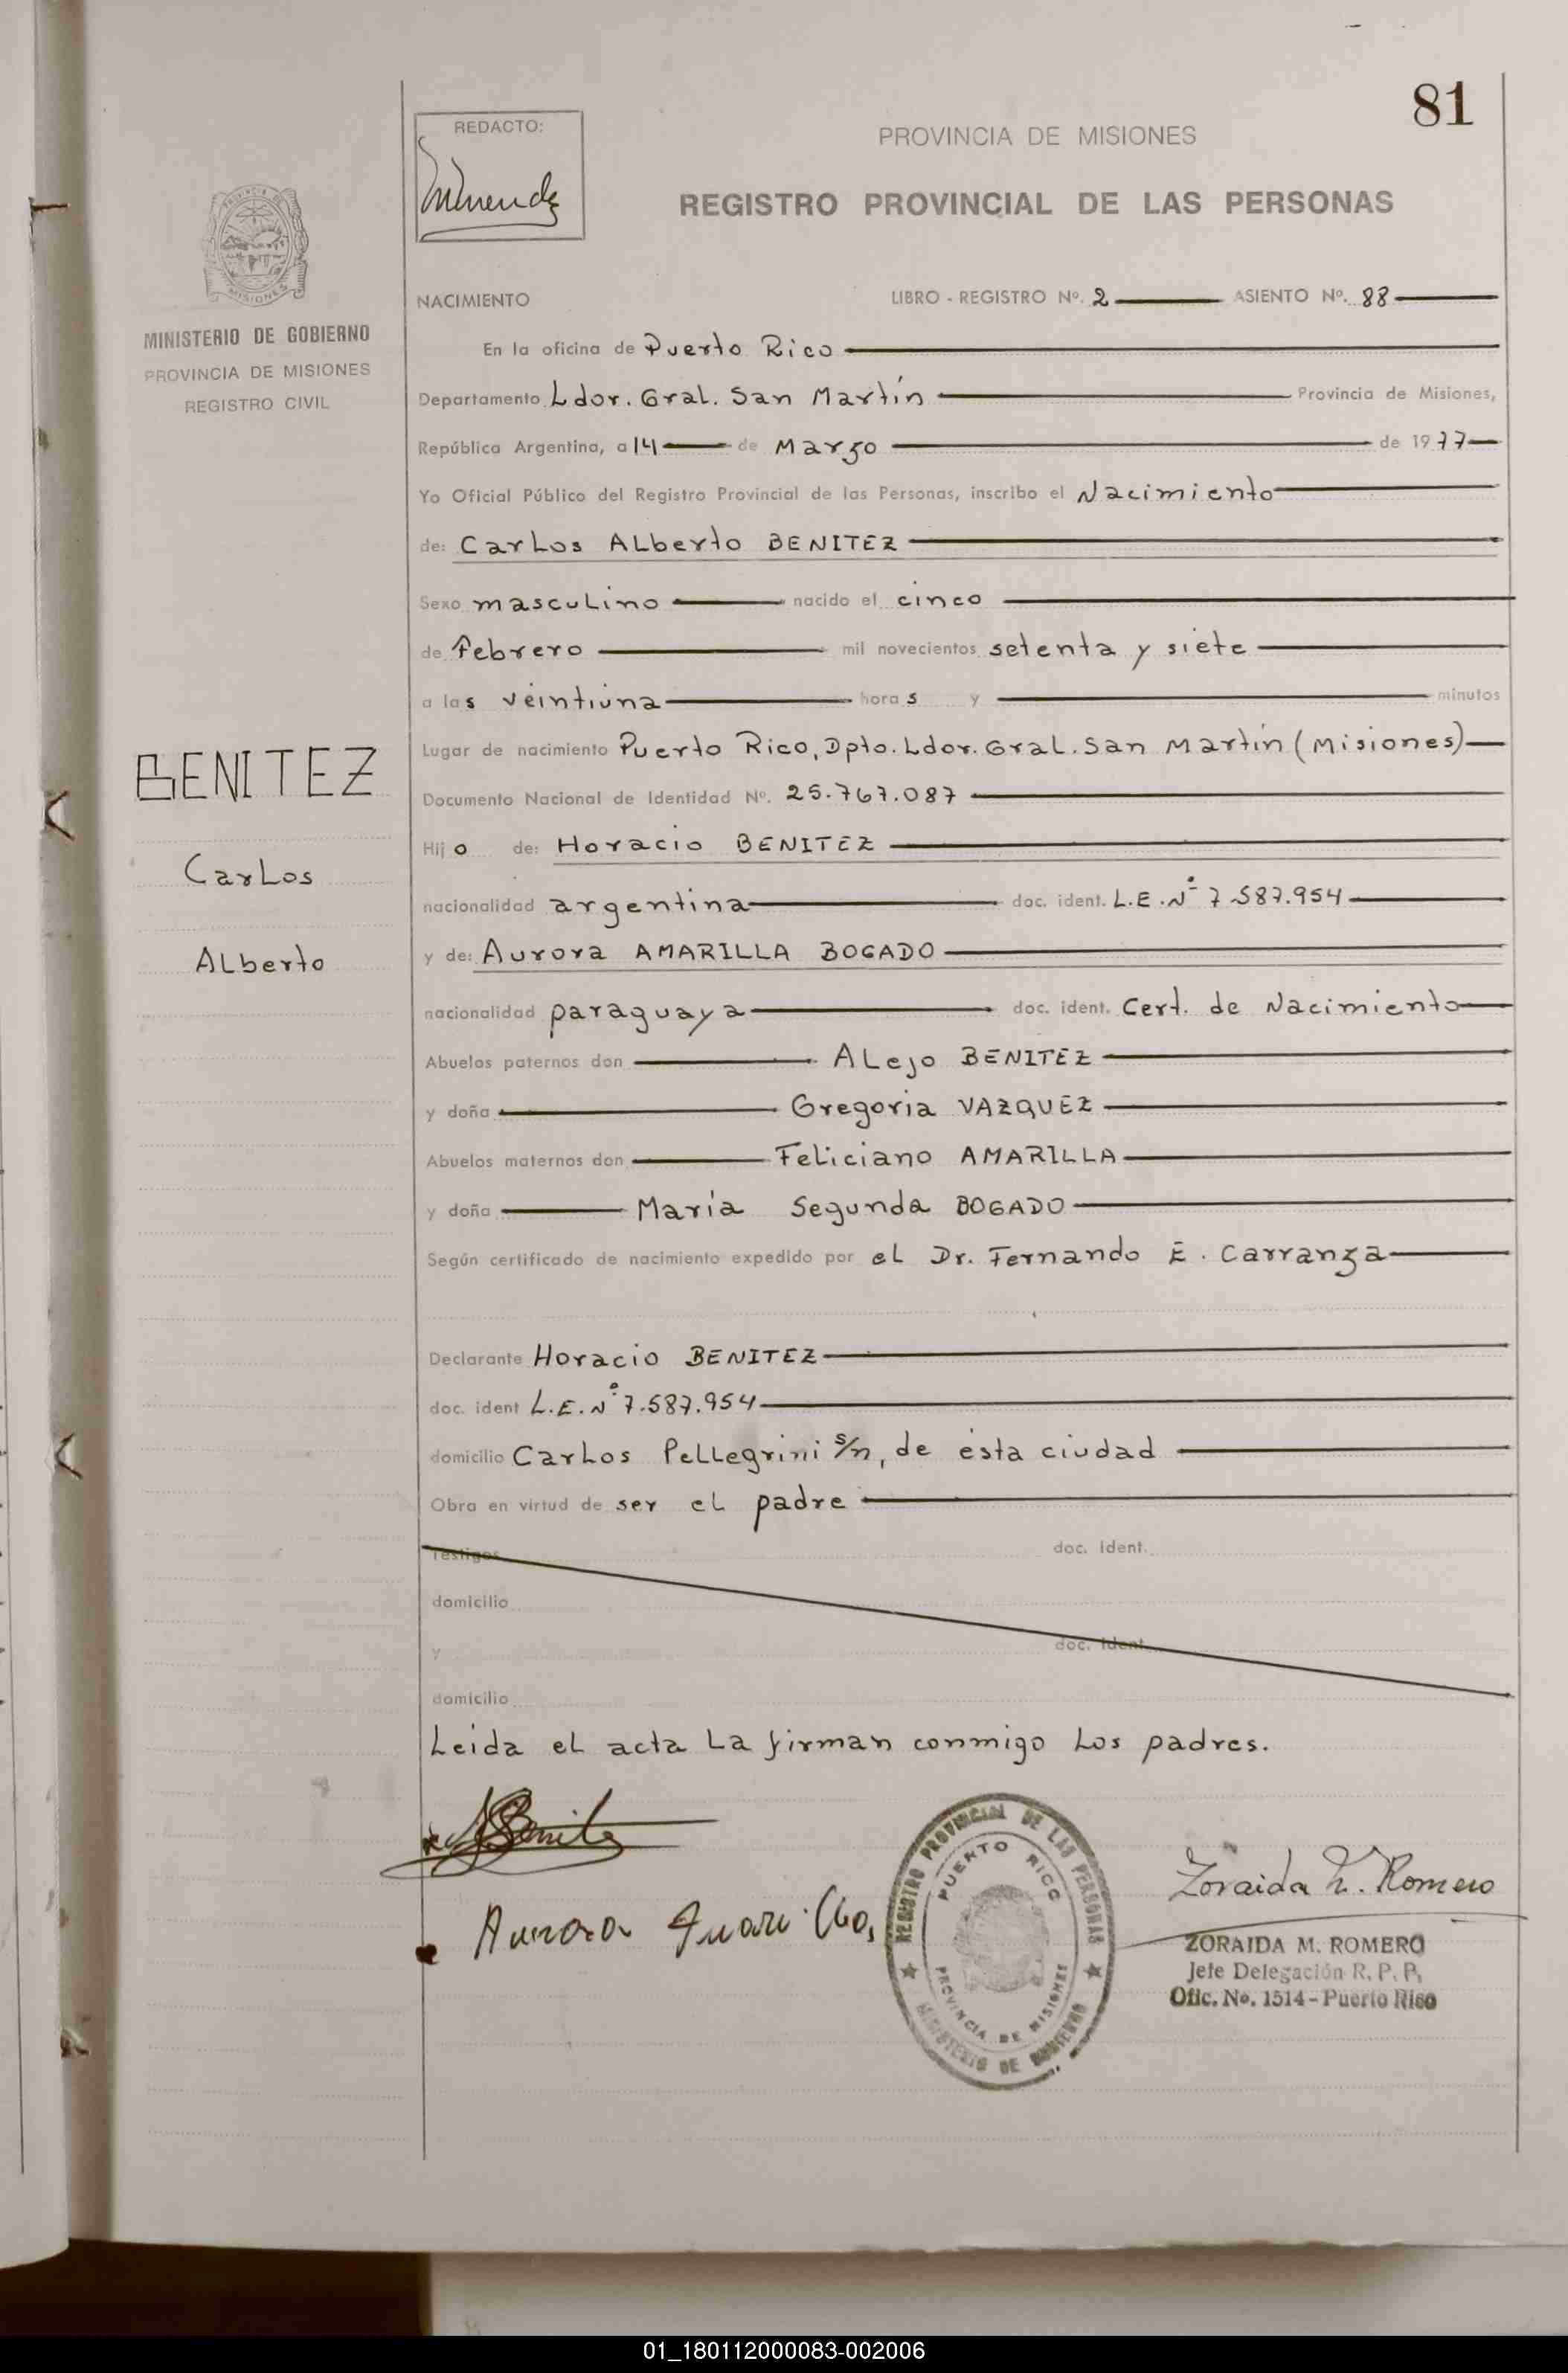 81
REDACTO:
PROVINCIA DE MISIONES
REGISTRO PROVINCIAL DE LAS PERSONAS
MISIONES
MINISTERIO DE GOBIERNO
PROVINCIA DE MISIONES
REGISTRO CIVIL
BENITEZ
Carlos
Alberto
NACIMIENTO LIBRO - REGISTRO Nº. 2 ASIENTO Nº. 88
En la oficina de Puerto Rico
Departamento Ldor. Gral. San Martín Provincia de Misiones,
República Argentina, a 14 de Marzo de 1977
Yo Oficial Público del Registro Provincial de las Personas, inscribo el Nacimiento
de: Carlos Alberto BENITEZ
Sexo masculino nacido el cinco
de Febrero mil novecientos setenta y siete
a las veintiuna horas y minutos
Lugar de nacimiento Puerto Rico, Dpto. Ldor. Gral. San Martín (Misiones)
Documento Nacional de Identidad Nº. 25.767.087
Hijo de: Horacio BENITEZ
nacionalidad argentina doc. ident. L.E. Nº 7.587.954
y de: Aurora AMARILLA BOGADO
nacionalidad paraguaya doc. ident. Cert. de Nacimiento
Abuelos paternos don Alejo BENITEZ
y doña Gregoria VAZQUEZ
Abuelos maternos don Feliciano AMARILLA
y doña María Segunda BOGADO
Según certificado de nacimiento expedido por el Dr. Fernando E. Carranza
Declarante Horacio BENITEZ
doc. ident L.E. Nº 7.587.954
domicilio Carlos Pellegrini s/n, de ésta ciudad
Obra en virtud de ser el padre
Testigos doc. ident.
domicilio
y doc. ident.
domicilio
Leída el acta La firman conmigo Los padres.
Benitez
Aurora
REGISTRO PROVINCIAL DE LAS PERSONAS
PUERTO RICO
PROVINCIA DE MISIONES
MINISTERIO DE GOBIERNO
Zoraida M. Romero
ZORAIDA M. ROMERO
Jefe Delegación R. P. P.
Ofic. No. 1514 - Puerto Rico
01_180112000083-002006